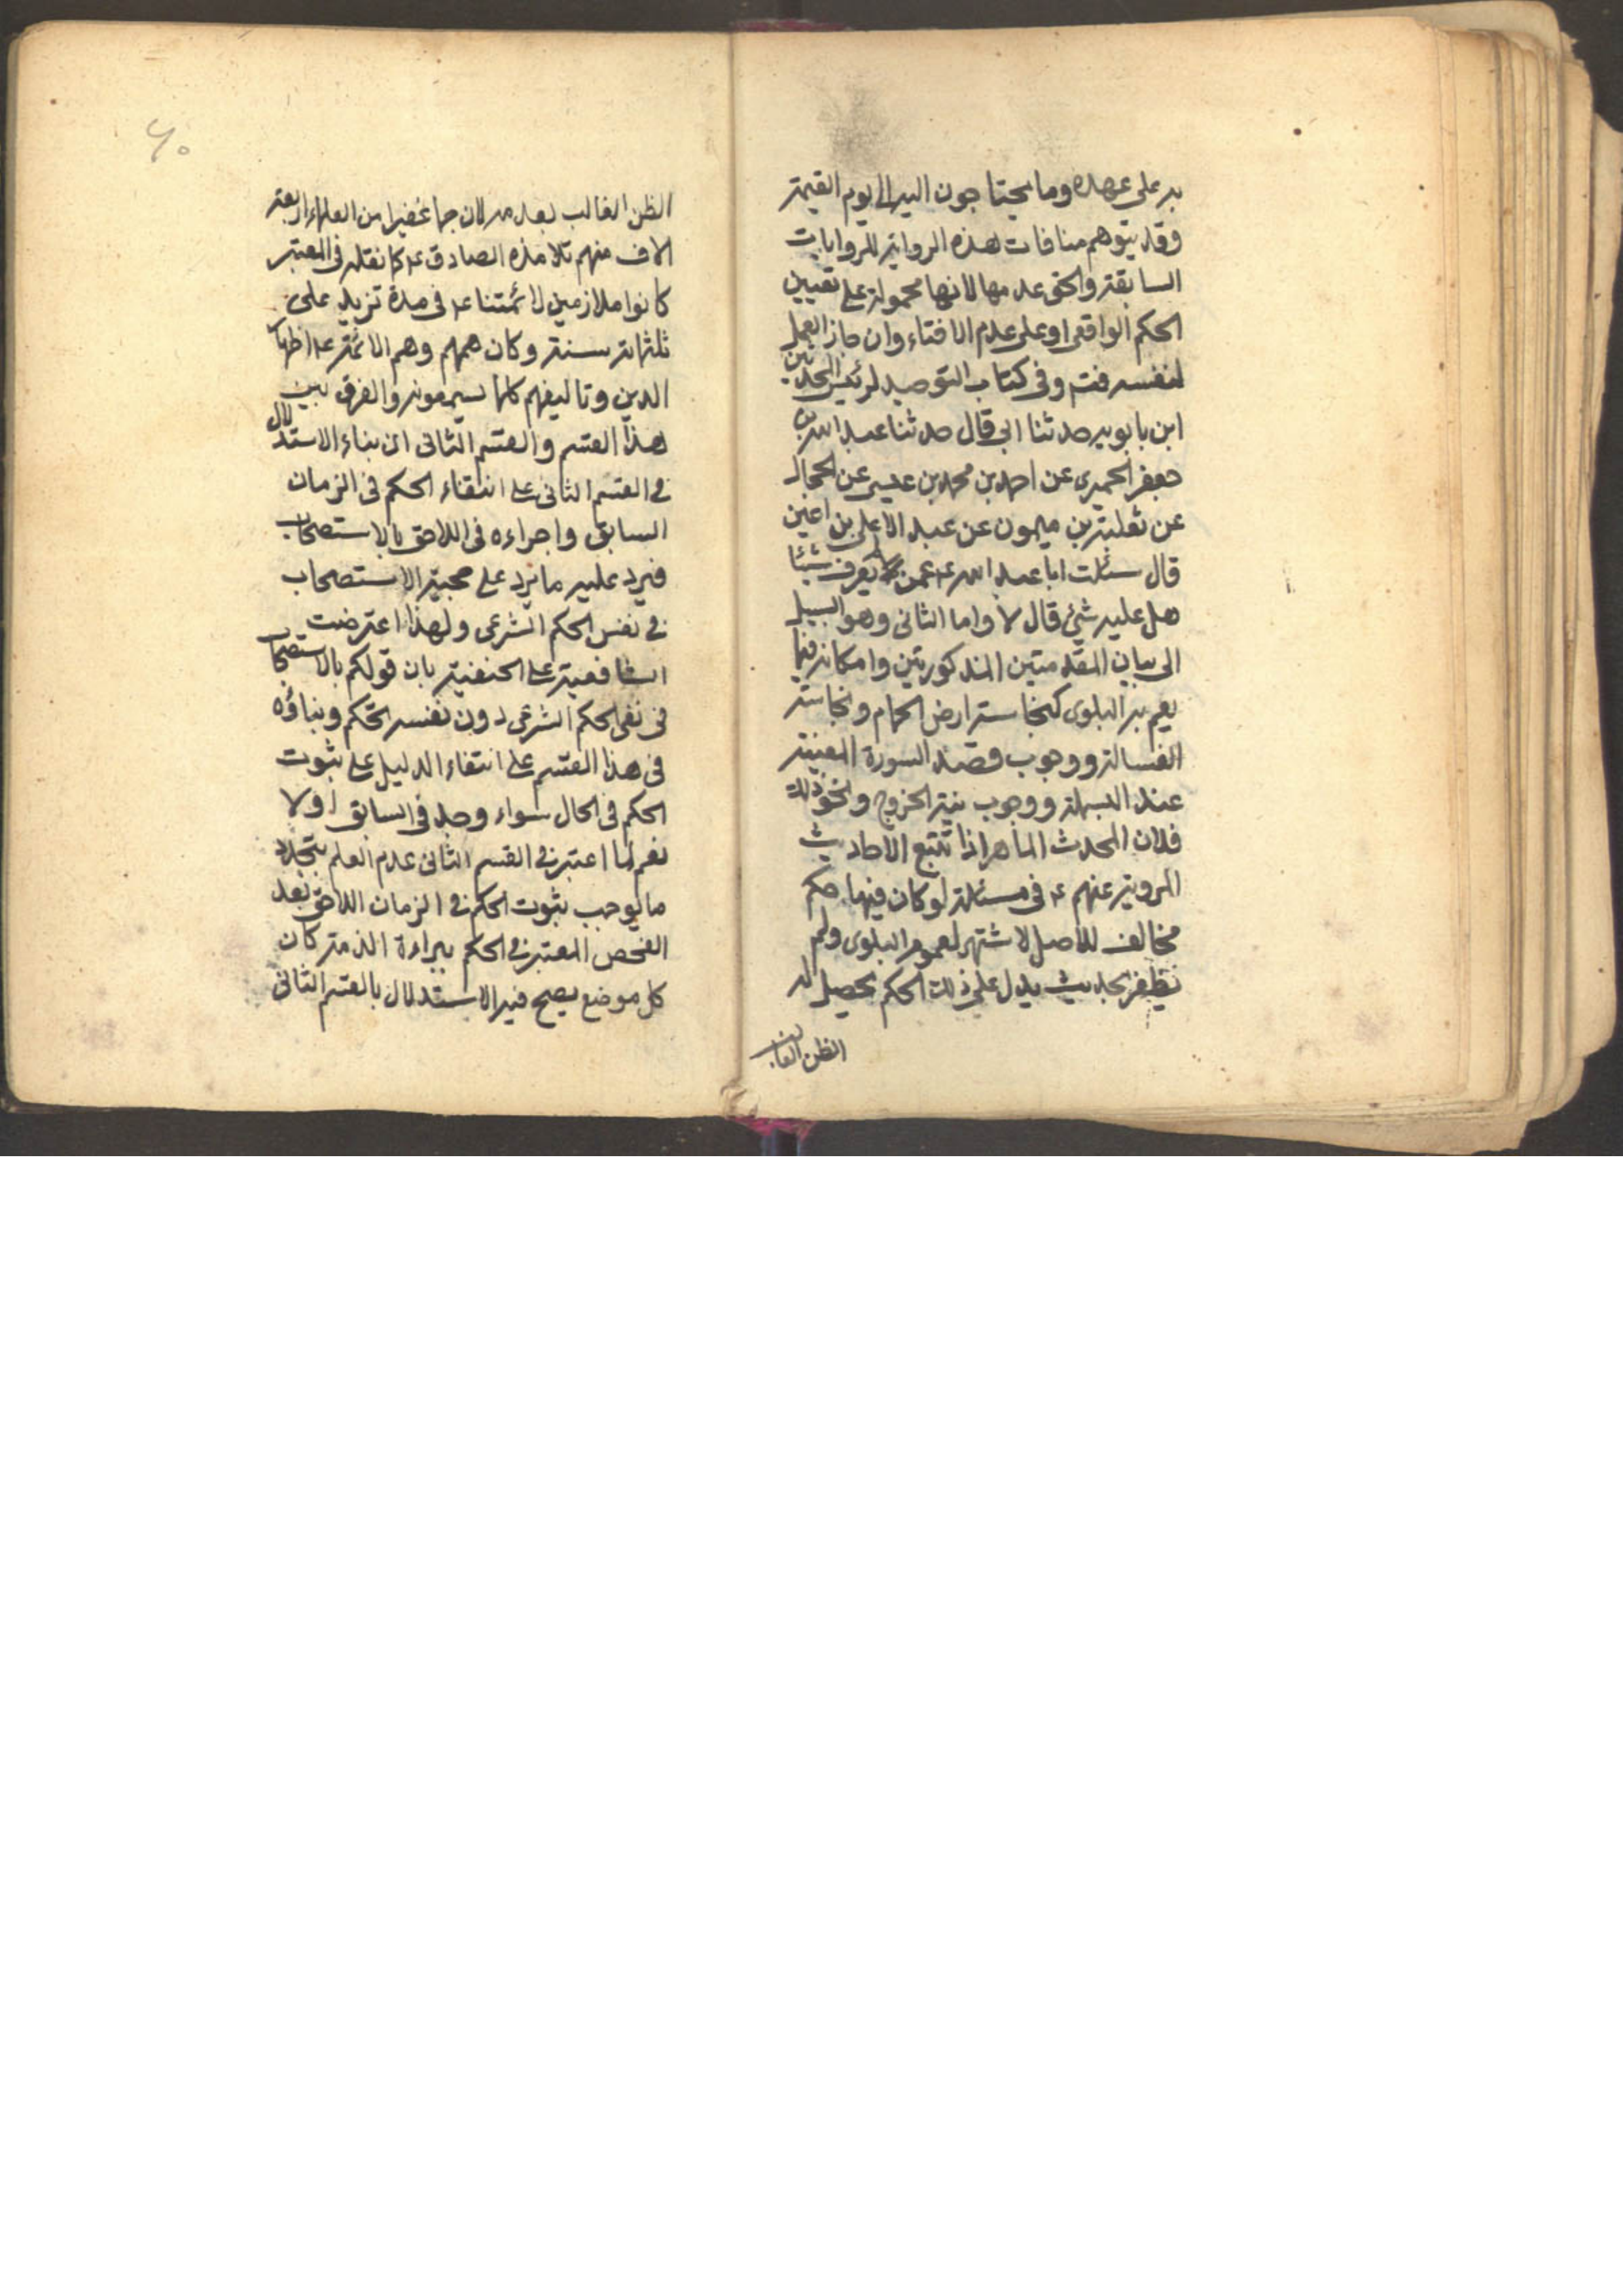 به على عهده وما يحتاجون اليه الى يوم القيمة
وقد يتوهم منافات هذه الرواية للروايات
السابقة والحق عدمها لانها محمولة على تعيين
الحكم الواقعى او على عدم الافتاء وان جاز العمل
لنفسه فت وفى كتاب التوحيد لرئيس المحدثين
ابن بابويه حدثنا ابى قال حدثنا عبد الله بن
جعفر الحميرى عن احمد بن محمد بن عيسى عن الحجال
عن ثعلبة بن ميمون عن عبد الاعلى بن اعين
قال سئلت ابا عبد الله ع عمن لا يعرف شيئا
هل عليه شئ قال لا واما الثانى وهو السبيل
الى بيان المقدمتين المذكورتين وامكانه فيما
يعم به البلوى كنجاسة ارض الحمام ونجاسة
الغسالة ووجوب قصد السورة المعينة
عند البسملة ووجوب نية الخروج ونحو ذلك
فلان المحدث الماهر اذا تتبع الاحاديث
المروية عنهم ع فى مسئلة لو كان فيها حكم
مخالف للاصل لاشتهر لعموم البلوى ولم
يظفر بحديث يدل على ذلك الحكم يحصل له
الظن الغالب
٦٠
الظن الغالب بعدمه لان جما غفيرا من العلماء اربعة
الاف منهم تلامذه الصادق ع كما نقله فى المعتبر
كانوا ملازمين لائمتنا ع فى مدة تزيد على
ثلثمائة سنة وكان همهم وهم الائمة ع اظهار
الدين وتاليفهم كلما يسمعونه والفرق بين
هذا القسم والقسم الثانى ان بناء الاستدلال
فى القسم الثانى على انتفاء الحكم فى الزمان
السابق واجراءه فى اللاحق بالاستصحاب
فيرد عليه ما يرد على حجية الاستصحاب
فى نفس الحكم الشرعى ولهذا اعترضت
الشافعية على الحنفية بان قولكم بالاستصحاب
فى نفى الحكم الشرعى دون نفسه تحكم وبناؤه
فى هذا القسم على انتفاء الدليل على ثبوت
الحكم فى الحال سواء وجد فى السابق اولا
نعم لما اعتبر فى القسم الثانى عدم العلم بتجدد
ما يوجب ثبوت الحكم فى الزمان اللاحق بعد
الفحص المعتبر فى الحكم ببراءة الذمة كان
كل موضع يصح فيه الاستدلال بالقسم الثانى